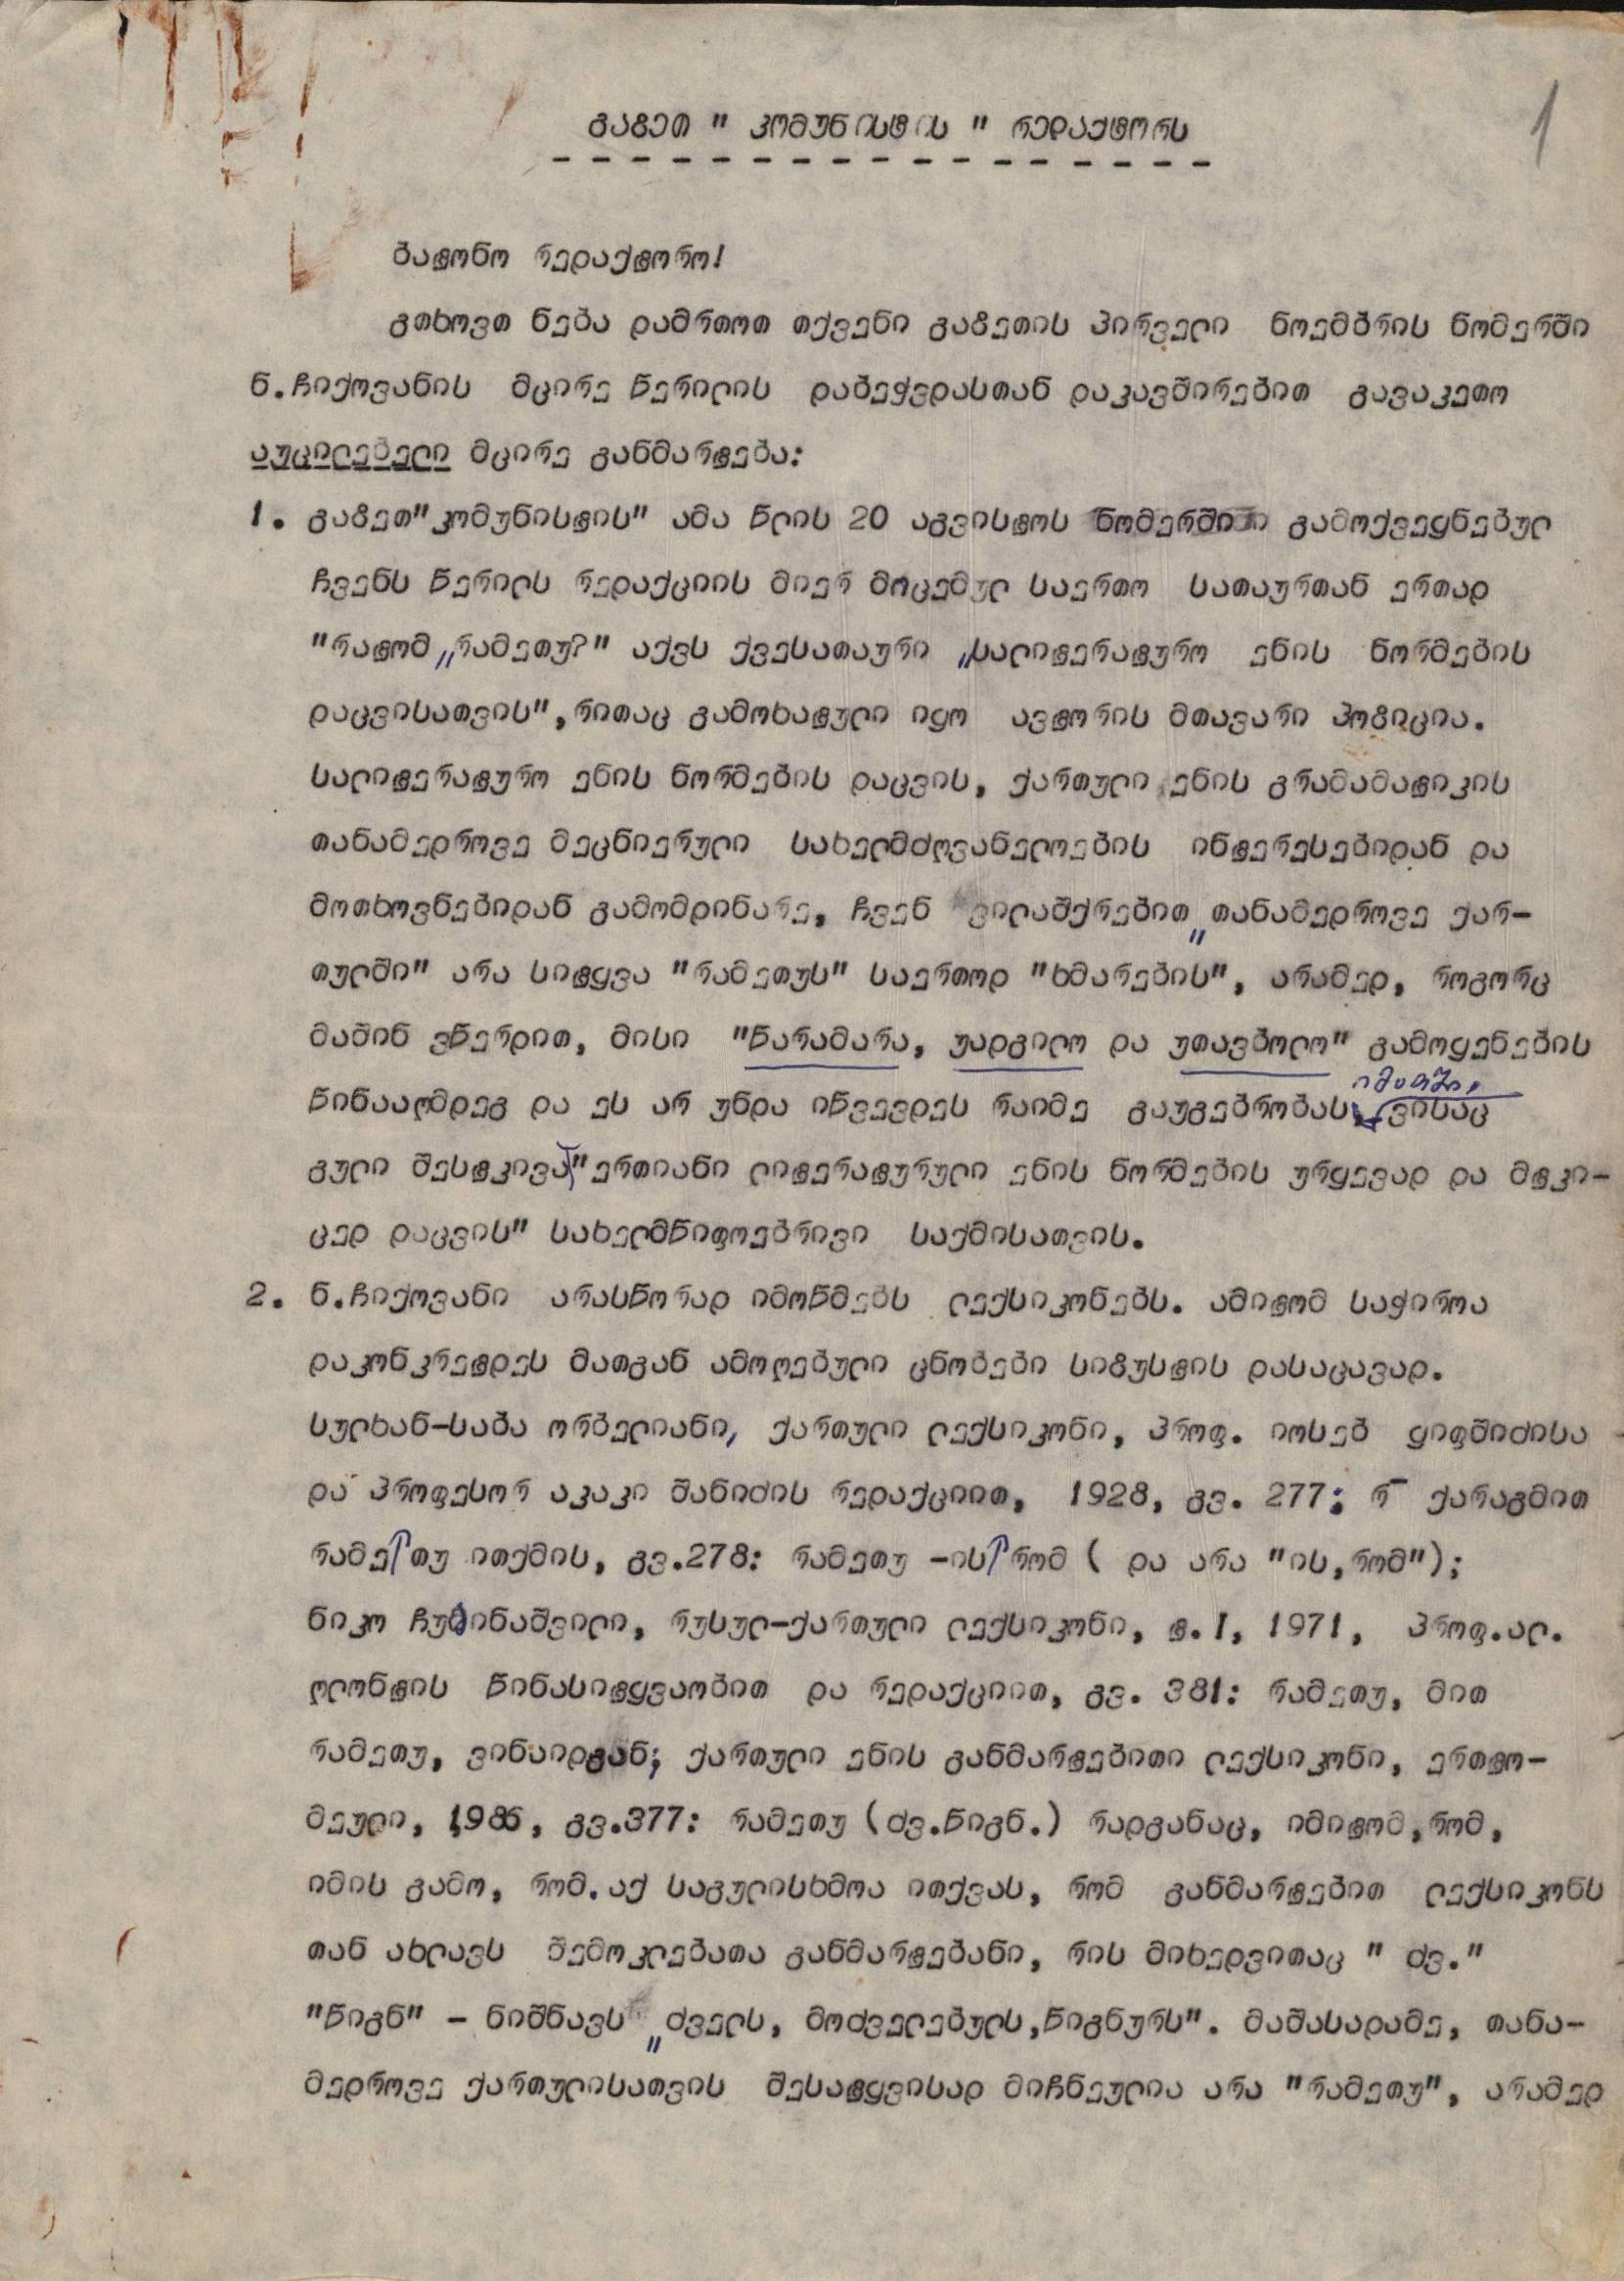 1
გაზეთ " კომუნისტის " რედაქტორს
ბატონო რედაქტორო!
გთხოვთ ნება დამრთოთ თქვენი გაზეთის პირველი ნოემბრის ნომერში
ნ.ჩიქოვანის მცირე წერილის დაბეჭვდასთან დაკავშირებით გავაკეთო
აუცილებელი მცირე განმარტება:
1. გაზეთ"კომუნისტის" ამა წლის 20 აგვისტოს ნომერში გამოქვეყნებულ
ჩვენს წერილს რედაქციის მიერ მოცემულ საერთო სათაურთან ერთად
"რატომ „რამეთუ?" აქვს ქვესათაური „სალიტერატურო ენის ნორმების
დაცვისათვის",რითაც გამოხატული იყო ავტორის მთავარი პოზიცია.
სალიტერატურო ენის ნორმების დაცვის, ქართული ენის გრამამატიკის
თანამედროვე მეცნიერული სახელმძღვანელოების ინტერესებიდან და
მოთხოვნებიდან გამომდინარე, ჩვენ ვილაშქრებით „თანამედროვე ქარ-
თულში" არა სიტყვა "რამეთუს" საერთოდ "ხმარების", არამედ, როგორც
მაშინ ვწერდით, მისი "წარამარა, უადგილო და უთავბოლო" გამოყენების
იმაში,
წინააღმდეგ და ეს არ უნდა იწვევდეს რაიმე გაუგებრობას, ვისაც
გული შესტკივა "ერთიანი ლიტერატურული ენის ნორმების ურყევად და მტკი-
ცედ დაცვის" სახელმწიფოებრივი საქმისათვის.
2. ნ.ჩიქოვანი არასწორად იმოწმებს ლექსიკონებს. ამიტომ საჭიროა
დაკონკრეტდეს მათგან ამოღებული ცნობები სიზუსტის დასაცავად.
სულხან-საბა ორბელიანი, ქართული ლექსიკონი, პროფ. იოსებ ყიფშიძისა
და პროფესორ აკაკი შანიძის რედაქციით, 1928, გვ. 277: რ¯ ქარაგმით
რამე თუ ითქმის, გვ.278: რამეთუ -ის რომ ( და არა "ის,რომ");
ნიკო ჩუბინაშვილი, რუსულ-ქართული ლექსიკონი, ტ.I, 1971, პროფ.ალ.
ღლონტის წინასიტყვაობით და რედაქციით, გვ. 381: რამეთუ, მით
რამეთუ, ვინაიდგან; ქართული ენის განმარტებითი ლექსიკონი, ერთტო-
მეული, 1986, გვ.377: რამეთუ (ძვ.წიგნ.) რადგანაც, იმიტომ,რომ,
იმის გამო, რომ.აქ საგულისხმოა ითქვას, რომ განმარტებით ლექსიკონს
თან ახლავს შემოკლებათა განმარტებანი, რის მიხედვითაც " ძვ."
"წიგნ" - ნიშნავს „ძველს, მოძველებულს,წიგნურს". მაშასადამე, თანა-
მედროვე ქართულისათვის შესატყვისად მიჩნეულია არა "რამეთუ", არამედ